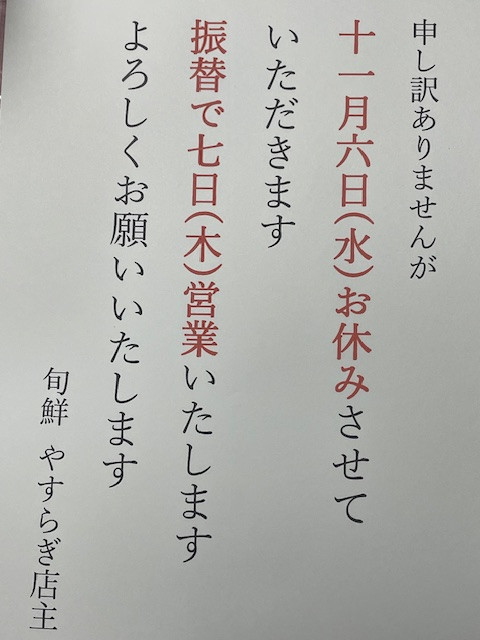 申し訳ありませんが
十一月六日(水)お休みさせて
いただきます
振替で七日(木)営業いたします
よろしくお願いいたします
旬鮮 やすらぎ店主